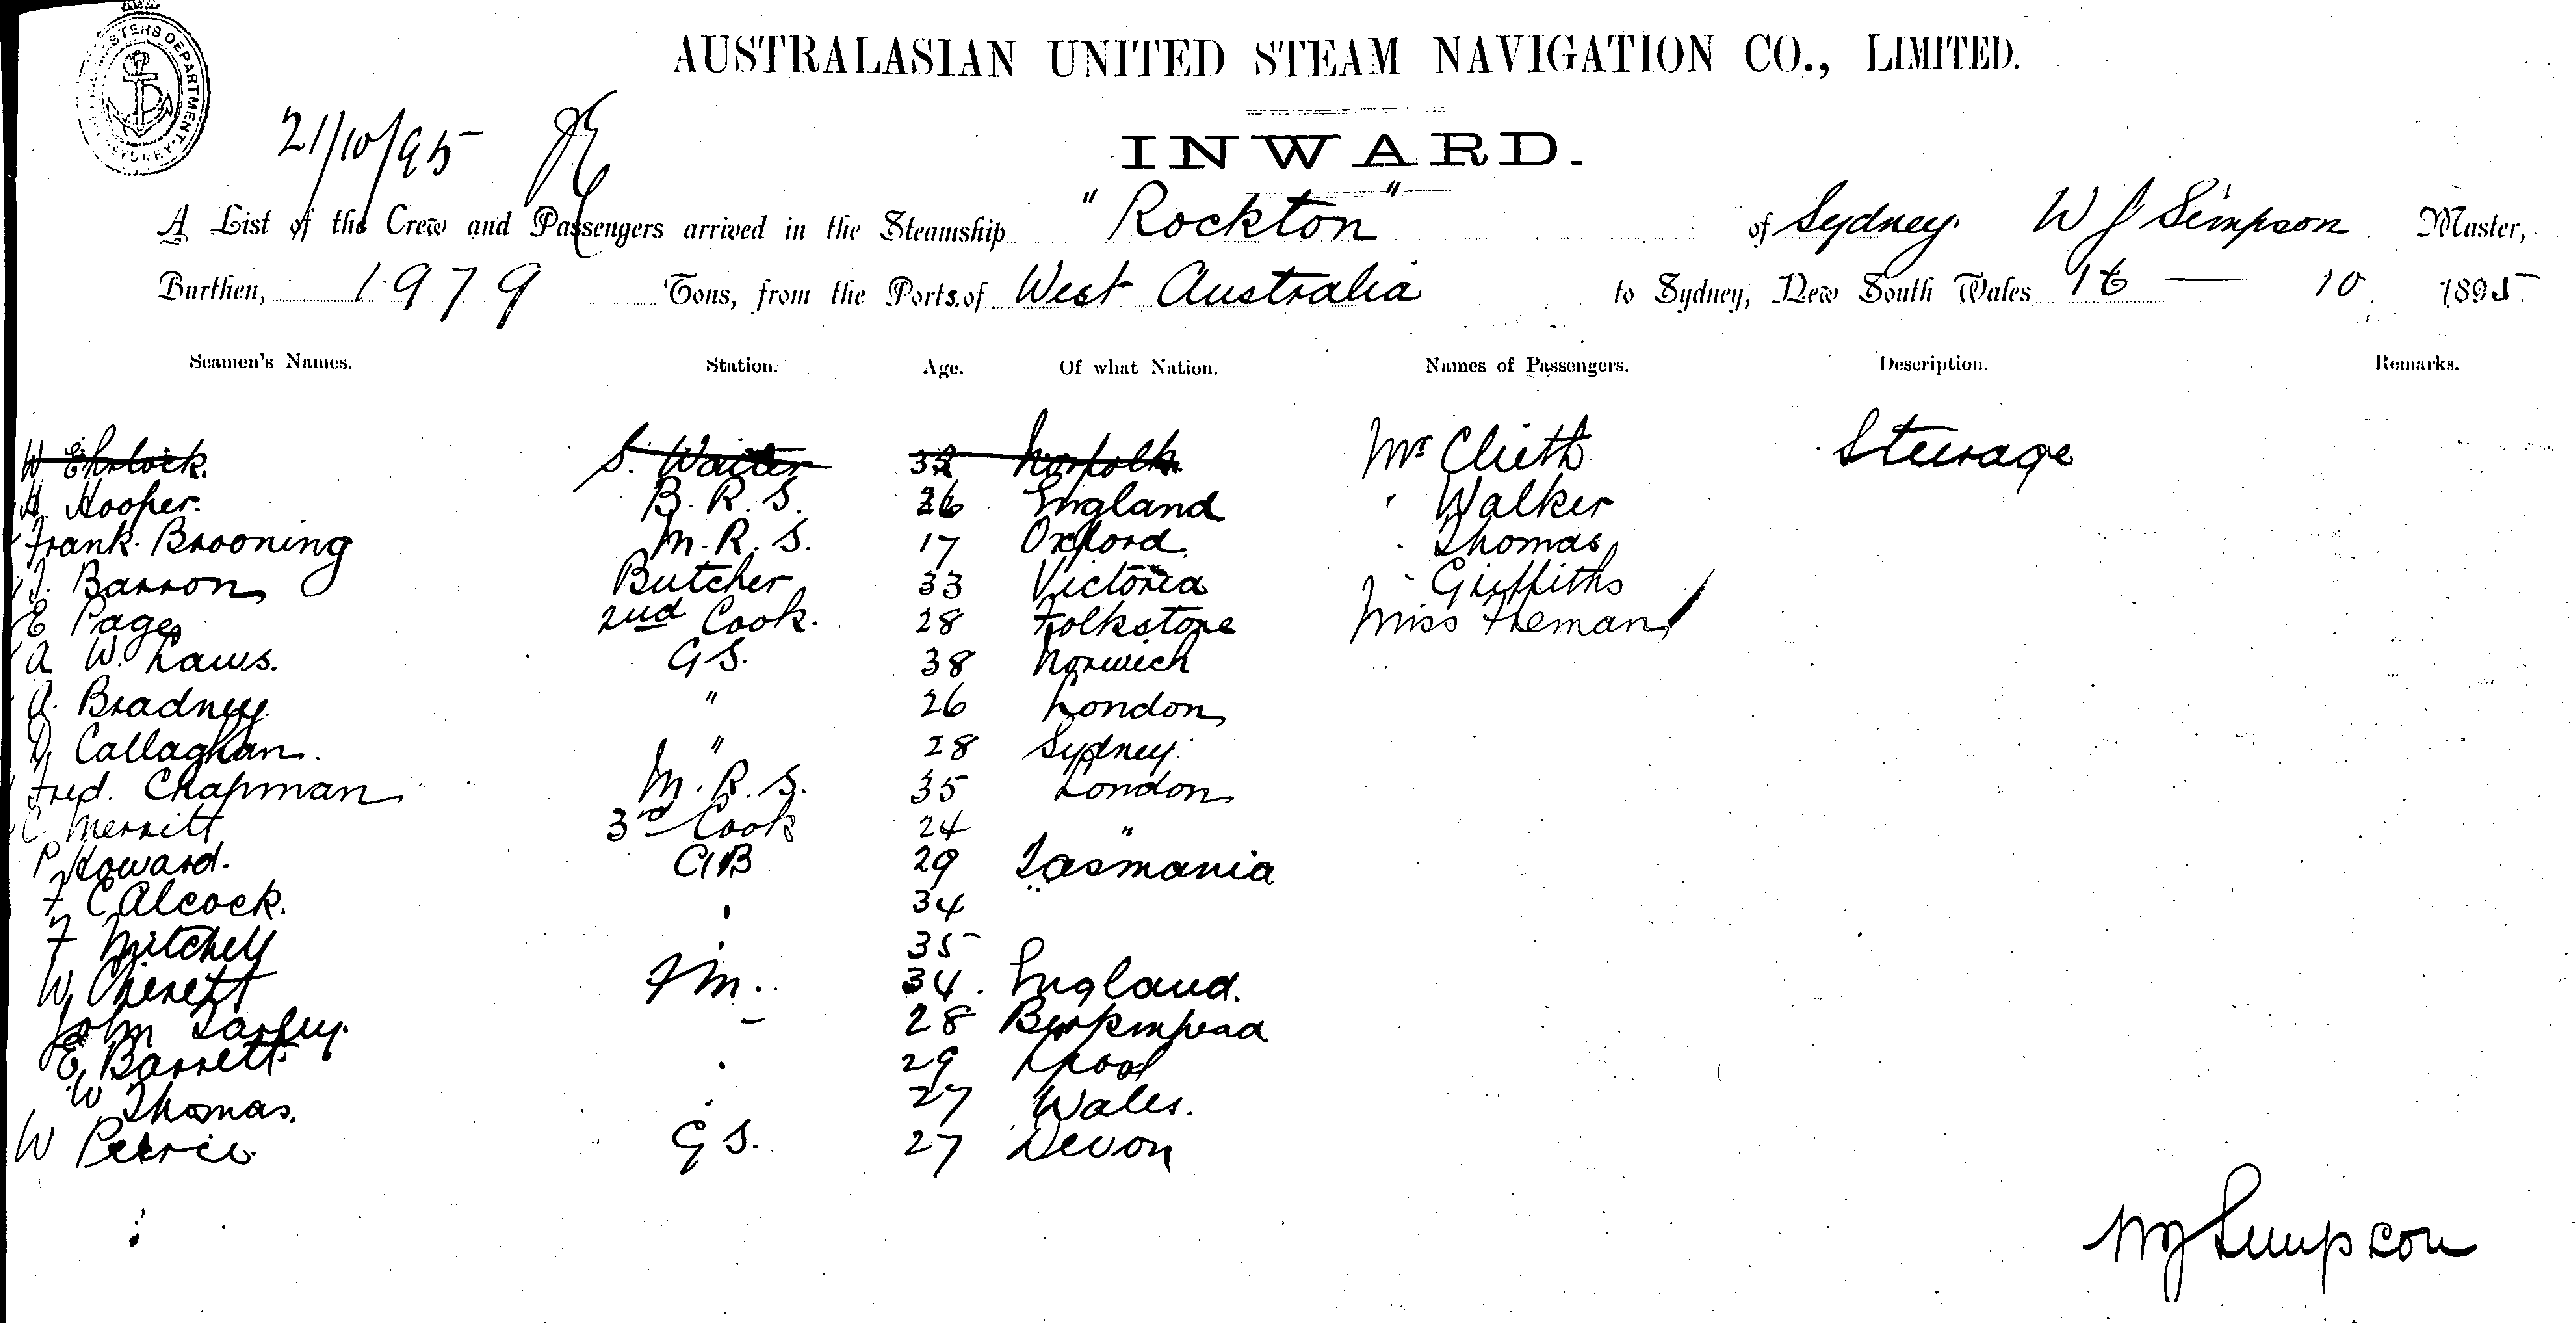 AUSTRALASIAN UNITED STEAM NAVIGATION CO., LIMITED.
21/10/95
INWARD.
A List of the Crew and Passengers arrived in the Steamship "Rockton" of Sydney. W J Simpson Master,
Burthen, 1979 Tons, from the Ports of West Australia to Sydney, New South Wales 16 — 10 1895
Seamen's Names. Station. Age. Of what Nation. Names of Passengers. Description. Remarks.
W S. Waiter 32 Norfolk Mr Steerage
H. Hooper. B. R. S. 26 England " Walker
Frank Brooning M. R. S. 17 Oxford " Thomas
Barron Butcher 33 Victoria " Griffiths
E Page 2nd Cook. 28 Folkstone Miss
A W. Laws. G S. 38 Norwich
A. Bradney " 26 London
D. Callaghan. " 28 Sydney.
Fred. Chapman M. R. S. 35 London
C Merritt 3rd Cook 24 "
P Howard. AB 29 Tasmania
F C Alcock. 34
F Mitchell 35
W F m. 34. England.
John 28 Birkenhead
E Barrett. 29 Lpool
W Thomas. 27 Wales.
W Petrie G S. 27 Devon
W J Simpson